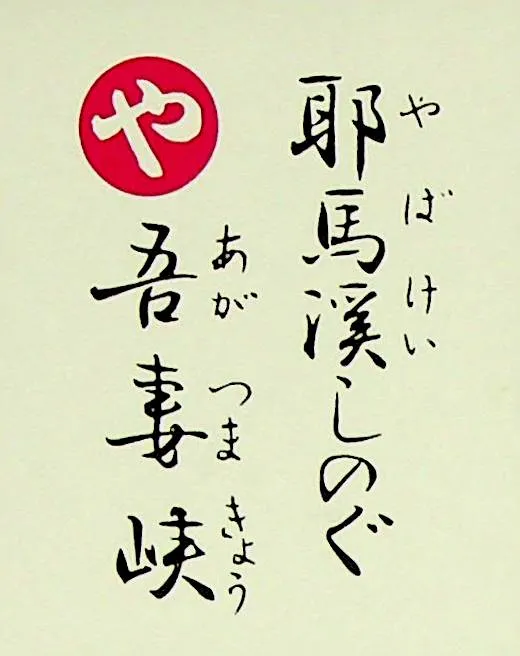 耶馬溪しのぐ
やばけい
や
吾妻峡
あがつまきょう